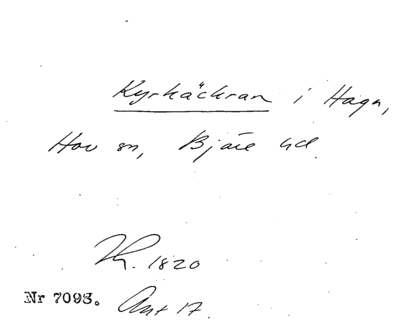 Kyrkäckran i Haga,
Hov sn, Bjäre hd.
Kh. 1820
Nr 7093. Ant 17.